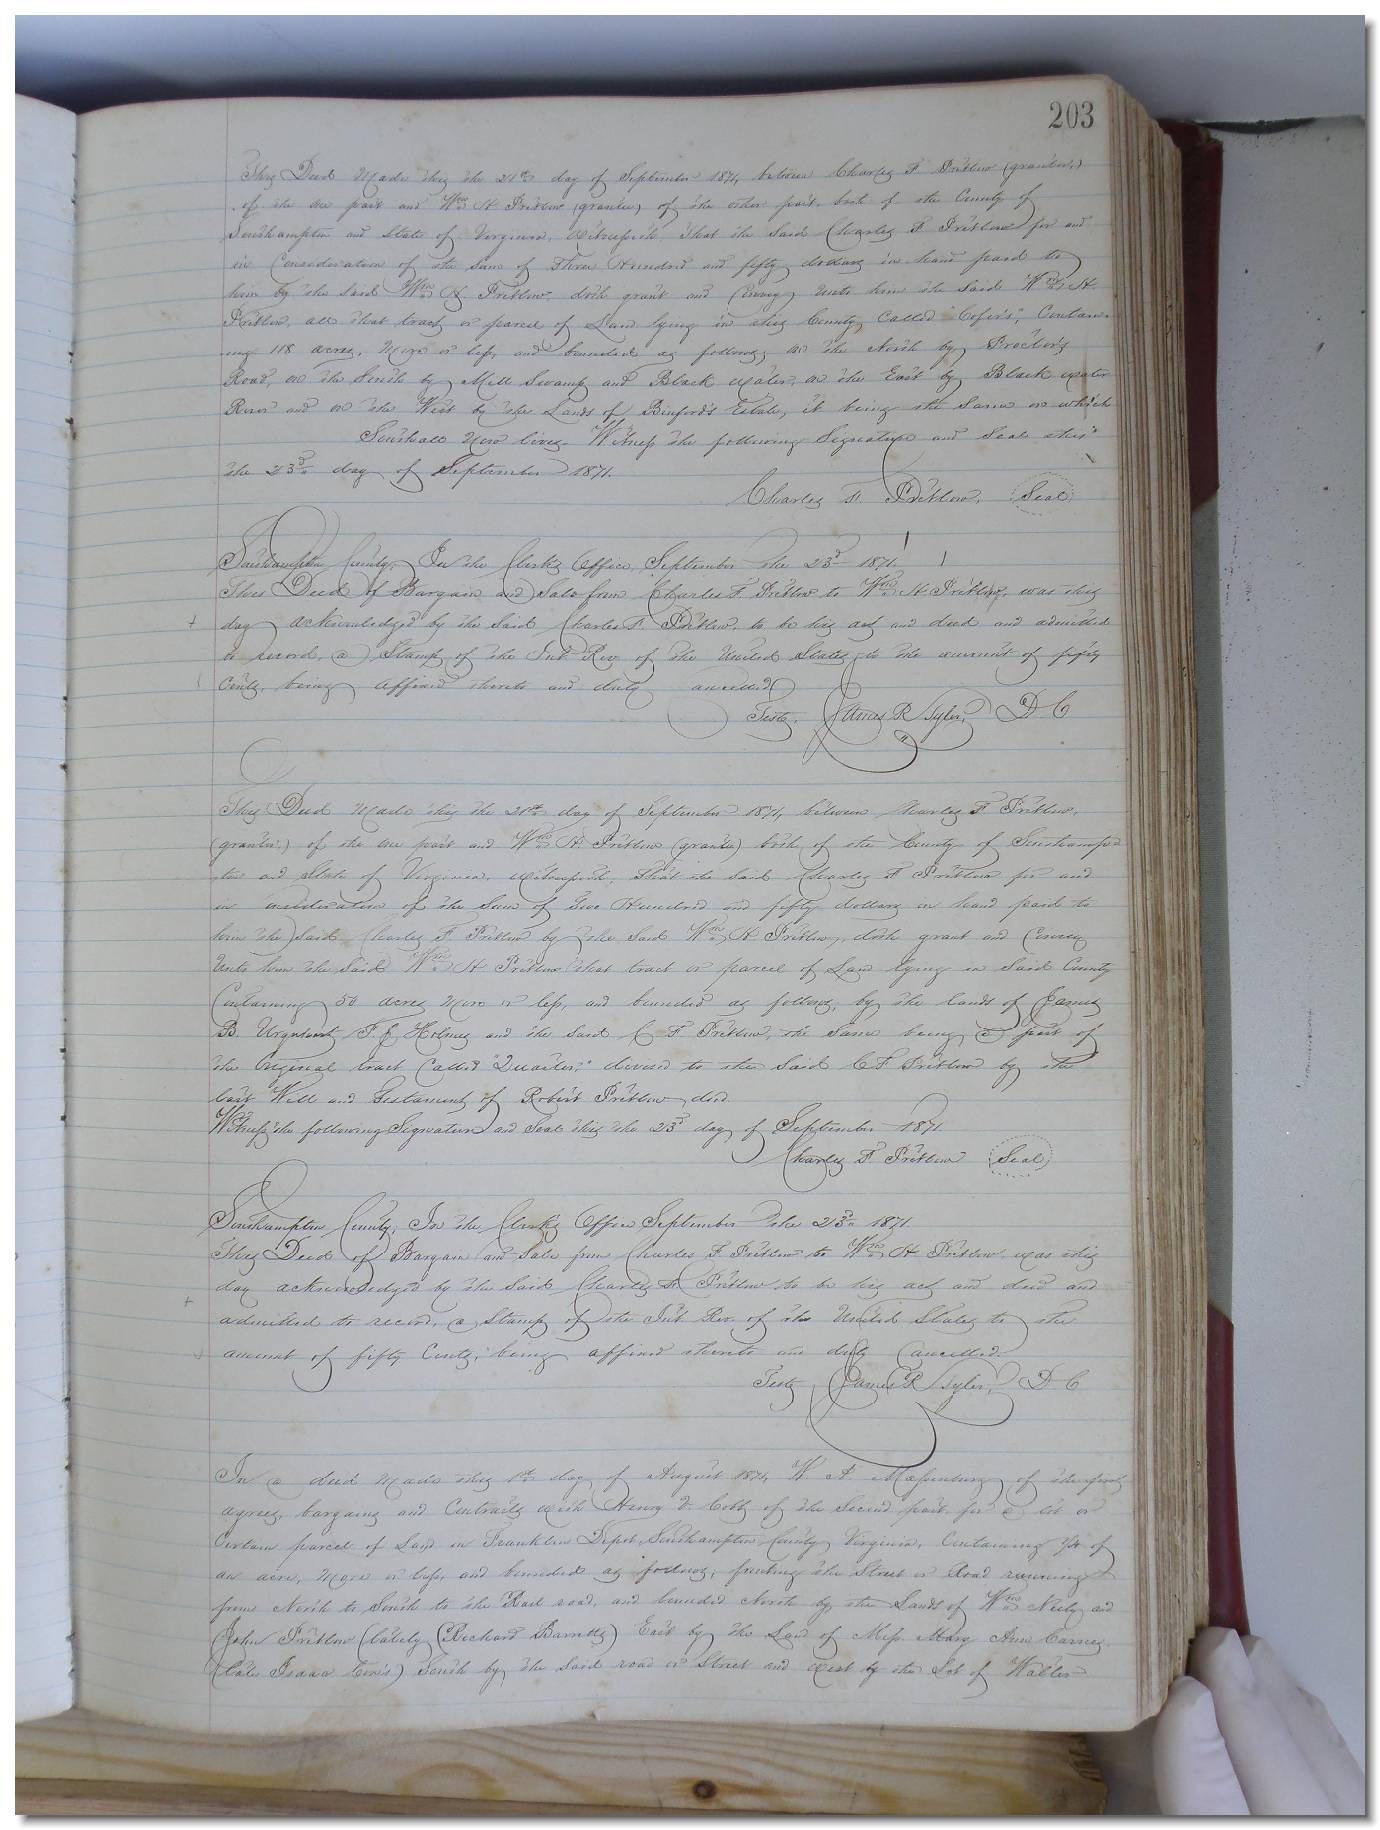 203
This Deed Made this the 21st day of September 1871, between Charles F Pretlow (grantor,)
of the one part and Wm H Pretlow (grantee) of the other part, both of the County of
Southampton and State of Virginia, Witnesseth, That the Said Charles F Pretlow for and
in Consideration of the Sum of Three Hundred and fifty dollars in hand paid to
him by the Said Wm H. Pretlow, doth grant and Convey unto him the Said Wm H.
Pretlow, all that tract or parcel of Land lying in this County Called "Cofer's," Contain-
ing 118 acres, More or less, and bounded as follows, on the North by Proctor's
Road, on the South by Mill Swamp and Black water, on the East by Black water
River and on the West by the Lands of Binford's Estate, it being the Same on which
Southall Now lives. Witness the following Signature and Seal this
the 23d day of September 1871.
Charles F. Pretlow. Seal
Southampton County, In the Clerks Office, September the 23d 1871.
This Deed of Bargain and Sale from Charles F. Pretlow to Wm H Pretlow, was this
day acknowledged by the Said Charles F. Pretlow, to be his act and deed and admitted
to record, a Stamp of the Int Rev. of the United States to the amount of fifty
Cents, being affixed thereto and duly cancelled
Teste, James R Tyler, D C
This Deed Made this the 21st day of September 1871, between Charles F Pretlow,
(grantor.) of the one part and Wm H. Pretlow (grantee) both of the County of Southamp=
ton and State of Virginia, Witnesseth, That the Said Charles F Pretlow for and
in consideration of the Sum of Two Hundred and fifty dollars in hand paid to
him the Said Charles F. Pretlow by the Said Wm H Pretlow, doth grant and Convey
Unto him the Said Wm H Pretlow that tract or parcel of Land lying in Said County
Containing 50 acres More or less, and bounded as follows, by the lands of James
B. Urquhart, T. J. Holmes and the Said C F Pretlow, the Same being a part of
the Original tract Called "Quarter," devised to the Said C F Pretlow by the
last Will and Testament of Robert Pretlow, decd.
Witness the following Signature and Seal this the 23d day of September 1871
Charles F Pretlow Seal
Southampton County, In the Clerks Office September the 23d 1871
This Deed of Bargain and Sale from Charles F Pretlow to Wm H Pretlow was this
day acknowledged by the Said Charles F Pretlow to be his act and deed and
admitted to record, a Stamp of the Int Rev. of the United States to the
amount of fifty Cents, being affixed thereto and duly Cancelled.
Teste James R Tyler, D C
In a deed Made this 1st day of August 1871, W A Massenburg of the first
agrees, bargains and Contracts with Henry Cobb of the Second part, for a lot or
Certain parcel of Land in Franklin Depot, Southampton County Virginia, Containing of
an acre, More or less, and bounded as follows, fronting the Street or Road running
from North to South to the Rail road, and bounded North by the Lands of Wm Neely and
John Pretlow (lately (Richard Barretts) East by the Land of Miss Mary Ann Carney
(late Isaac ) South by the Said road or Street and West by the Lot of Walter